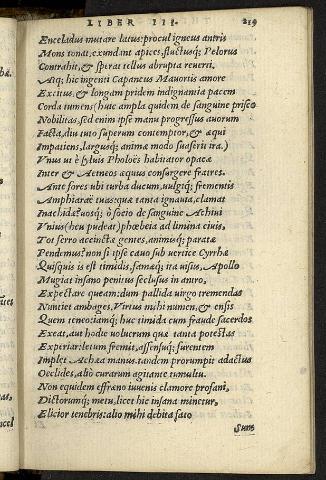 LIBER III. 219
Enceladus mutare latus: procul igneus antris
Mons tonat, exundant apices, fluctusq; Pelorus
Contrahit, & sperat tellus abrupta reuerti.
Atq; hic ingenti Capaneus Mauortis amore
Excitus, & longam pridem indignantia pacem
Corda tumens (huic ampla quidem de sanguine prisco
Nobilitas, sed enim ipse manu progressus auorum
Facta, diu tuto superum contemptor, & æqui
Impatiens, largusq; animæ modo suaserit ira.)
Vnus ut è syluis Pholoës habitator opacæ
Inter & Aetneos æquus consurgere fratres.
Ante fores ubi turba ducum, uulgiq; frementis
Amphiaraë tuas: quæ tanta ignauia, clamat
Inachidæ? uosq; ô socio de sanguine Achiui
Vnius (heu pudeat) phœbeia ad limina ciuis,
Tot ferro accinctæ gentes, animisq; paratæ
Pendemus? non si ipse cauo sub vertice Cyrrhæ
Quisquis is est timidis, famæq; ita uisus, Apollo
Mugiat insano penitus seclusus in antro,
Expectare queam: dum pallida uirgo tremendas
Nuntiet ambages, Virtus mihi numen, & ensis
Quem teneo: iamq; huc timida cum fraude sacerdos
Exeat, aut hodie uolucrum quæ tanta potestas
Experiar. lætum fremit, assensuq; furentem
Implet Achæa manus. tandem prorumpit adactus
Oeclides, aliò curarum agitante tumultu.
Non equidem effræno iuuenis clamore profani,
Dictorumq; metu, licet hic insana minetur,
Elicior tenebris: alio mihi debita fato
Sum